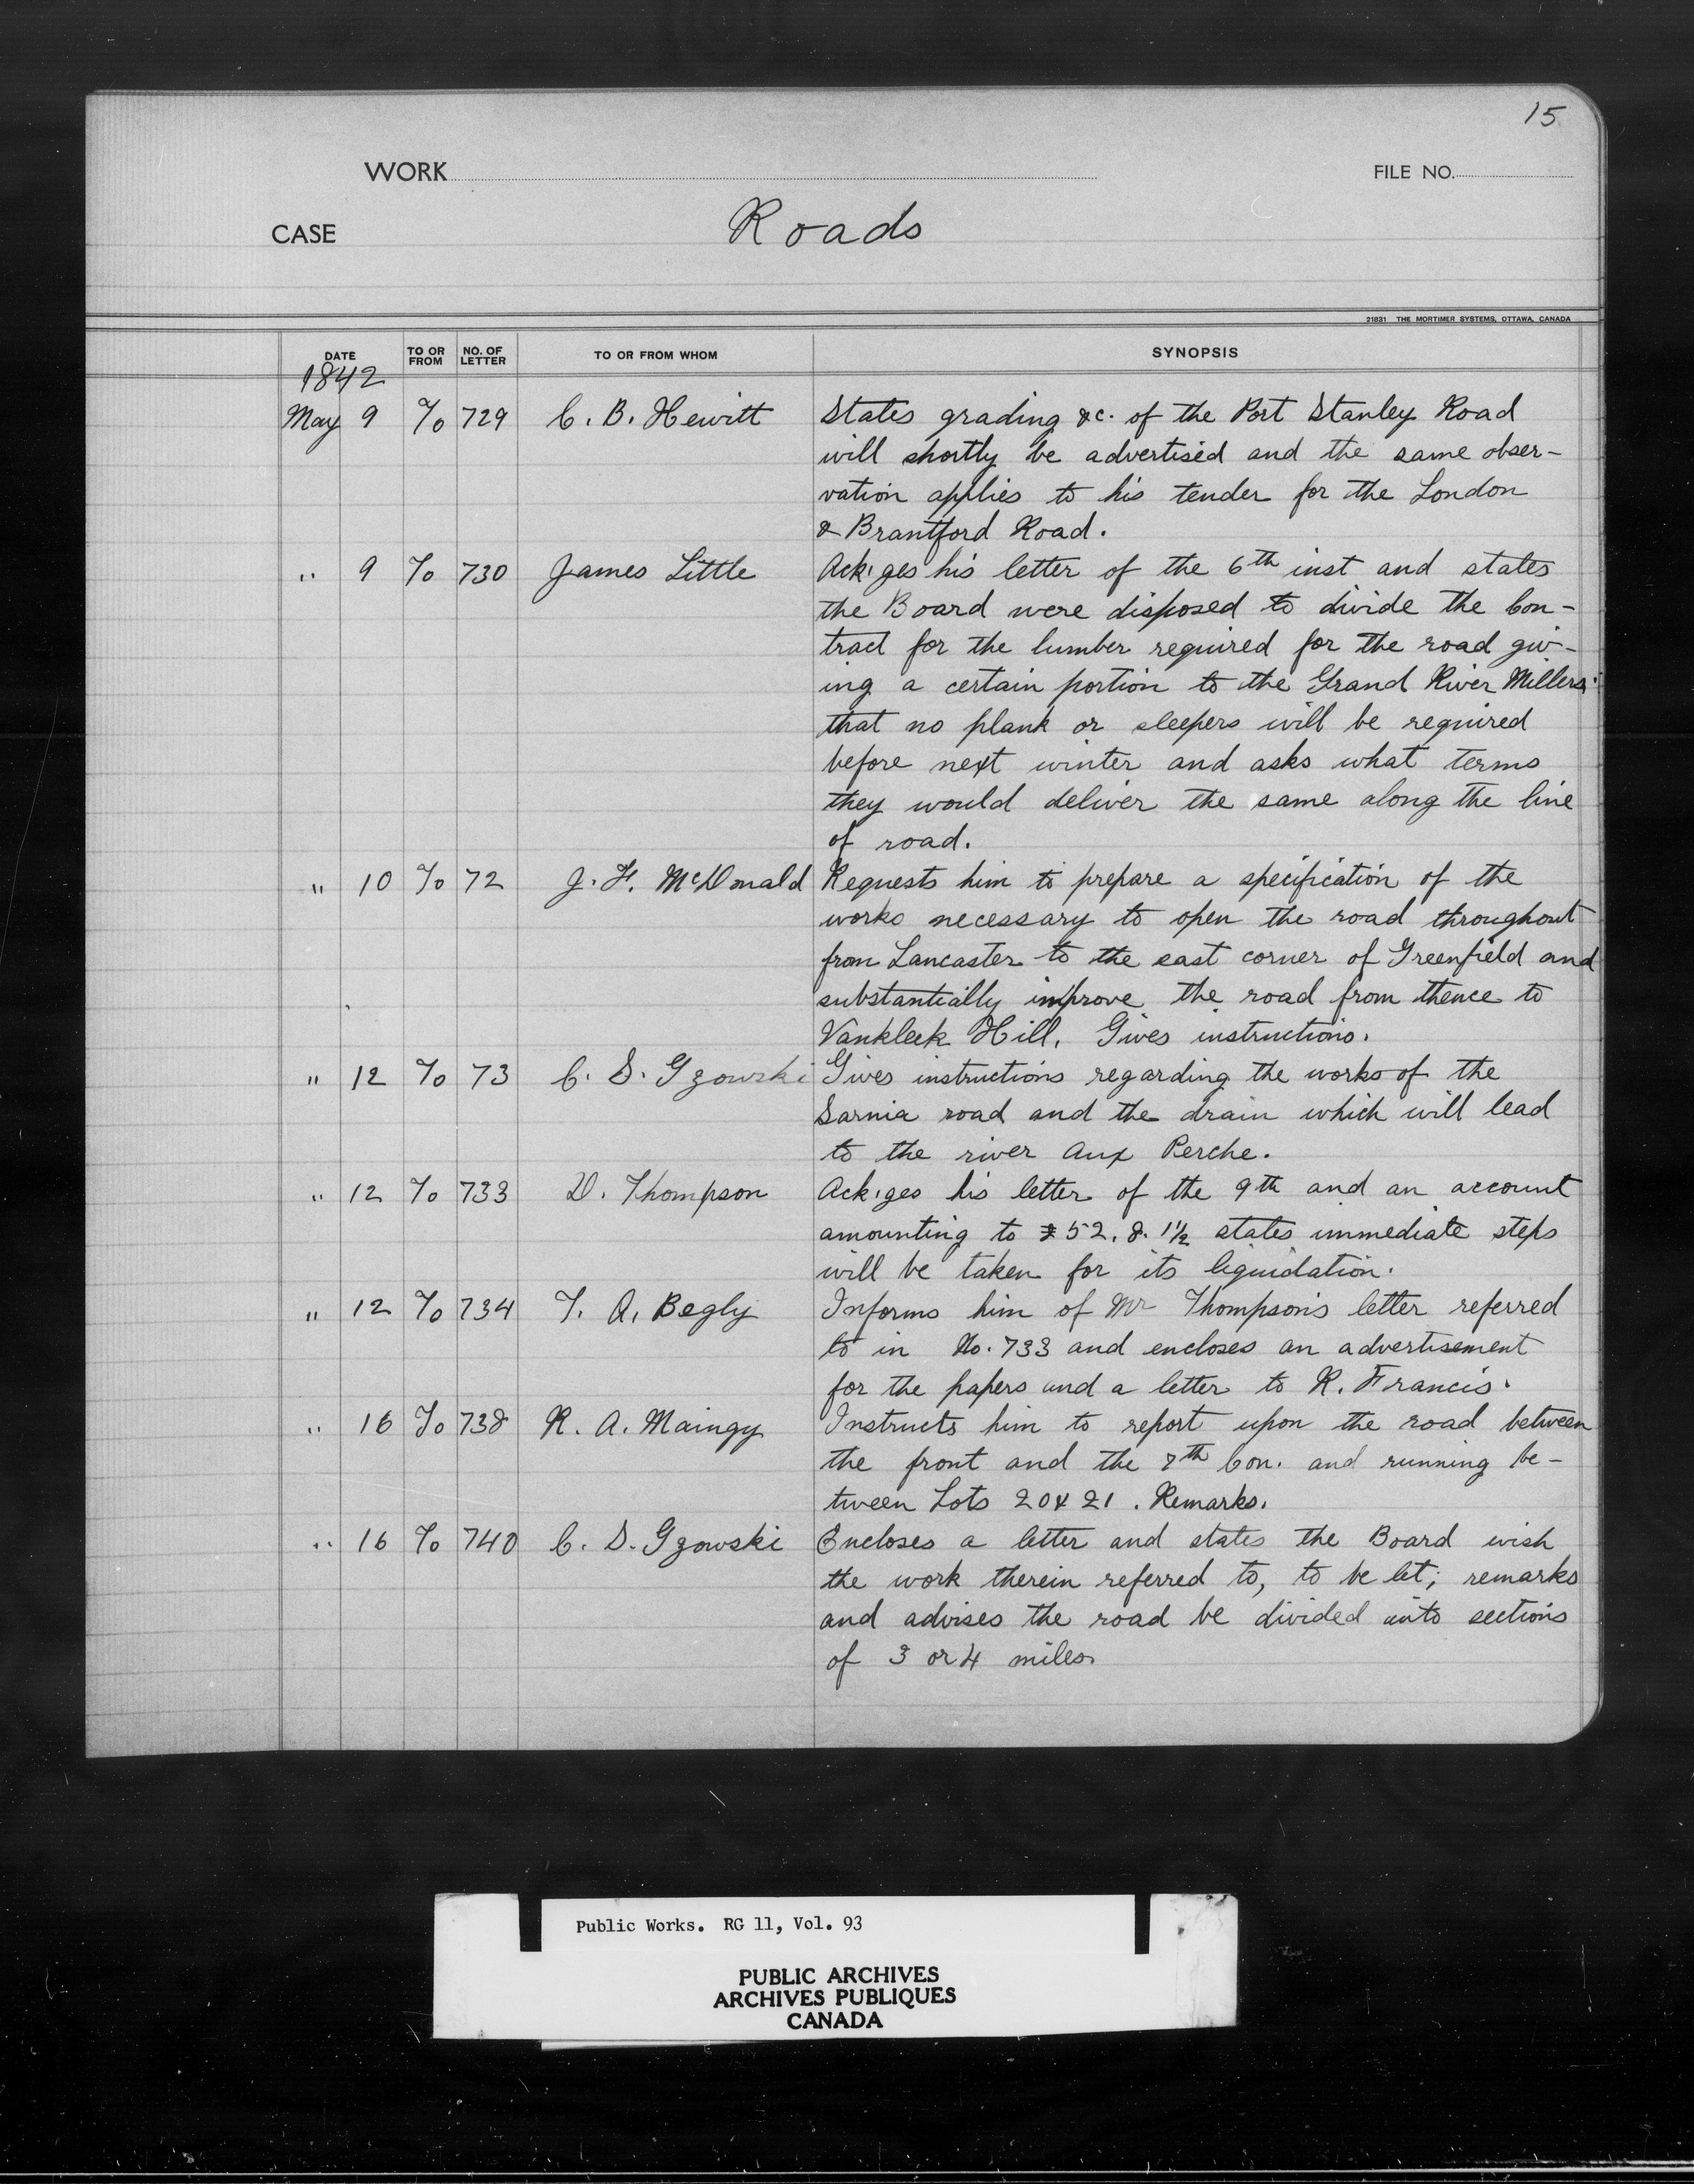 15
WORK
FILE NO.
CASE
Roads
21831 THE MORTIMER SYSTEMS, OTTAWA, CANADA
DATE TO OR FROM NO. OF LETTER TO OR FROM WHOM SYNOPSIS
1842
May 9 To 729 C. B. Hewitt States grading &c. of the Port Stanley Road
will shortly be advertised and the same obser-
vation applies to his tender for the London
& Brantford Road.
" 9 To 730 James Little Ack'ges his letter of the 6th inst and states
the Board were disposed to divide the Con-
tract for the lumber required for the road giv-
ing a certain portion to the Grand River Millers:
that no plank or sleepers will be required
before next winter and asks what terms
they would deliver the same along the line
of road.
" 10 To 72 J. F. McDonald Requests him to prepare a specification of the
works necessary to open the road throughout
from Lancaster to the east corner of Greenfield and
substantially improve the road from thence to
Vankleek Hill. Gives instructions.
" 12 To 73 C. S. Gzowski Gives instructions regarding the works of the
Sarnia road and the drain which will lead
to the river Aux Perche.
" 12 To 733 D. Thompson Ack'ges his letter of the 9th and an account
amounting to £52. 8. 1½ states immediate steps
will be taken for its liquidation.
" 12 To 734 T. A. Begly Informs him of Mr Thompson's letter referred
to in No. 733 and encloses an advertisement
for the papers and a letter to R. Francis.
" 16 To 738 R. A. Maingy Instructs him to report upon the road between
the front and the 8th Con. and running be-
tween Lots 20 & 21. Remarks.
" 16 To 740 C. S. Gzowski Encloses a letter and states the Board wish
the work therein referred to, to be let; remarks
and advises the road be divided into sections
of 3 or 4 miles.
Public Works. RG 11, Vol. 93
PUBLIC ARCHIVES
ARCHIVES PUBLIQUES
CANADA